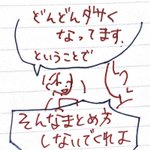 どんどんダサく
なってます
ということで
そんなまとめ方
しないでくれよ